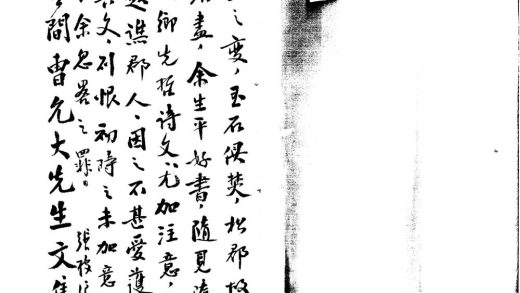 之变，玉石俱焚，松郡故
盡，余生平好書，隨見
鄉先哲詩文，尤加注意，
譙郡人，因之不甚愛護
文，則恨初時之未加意
余忽畧之罪。張
間曹允大先生文集